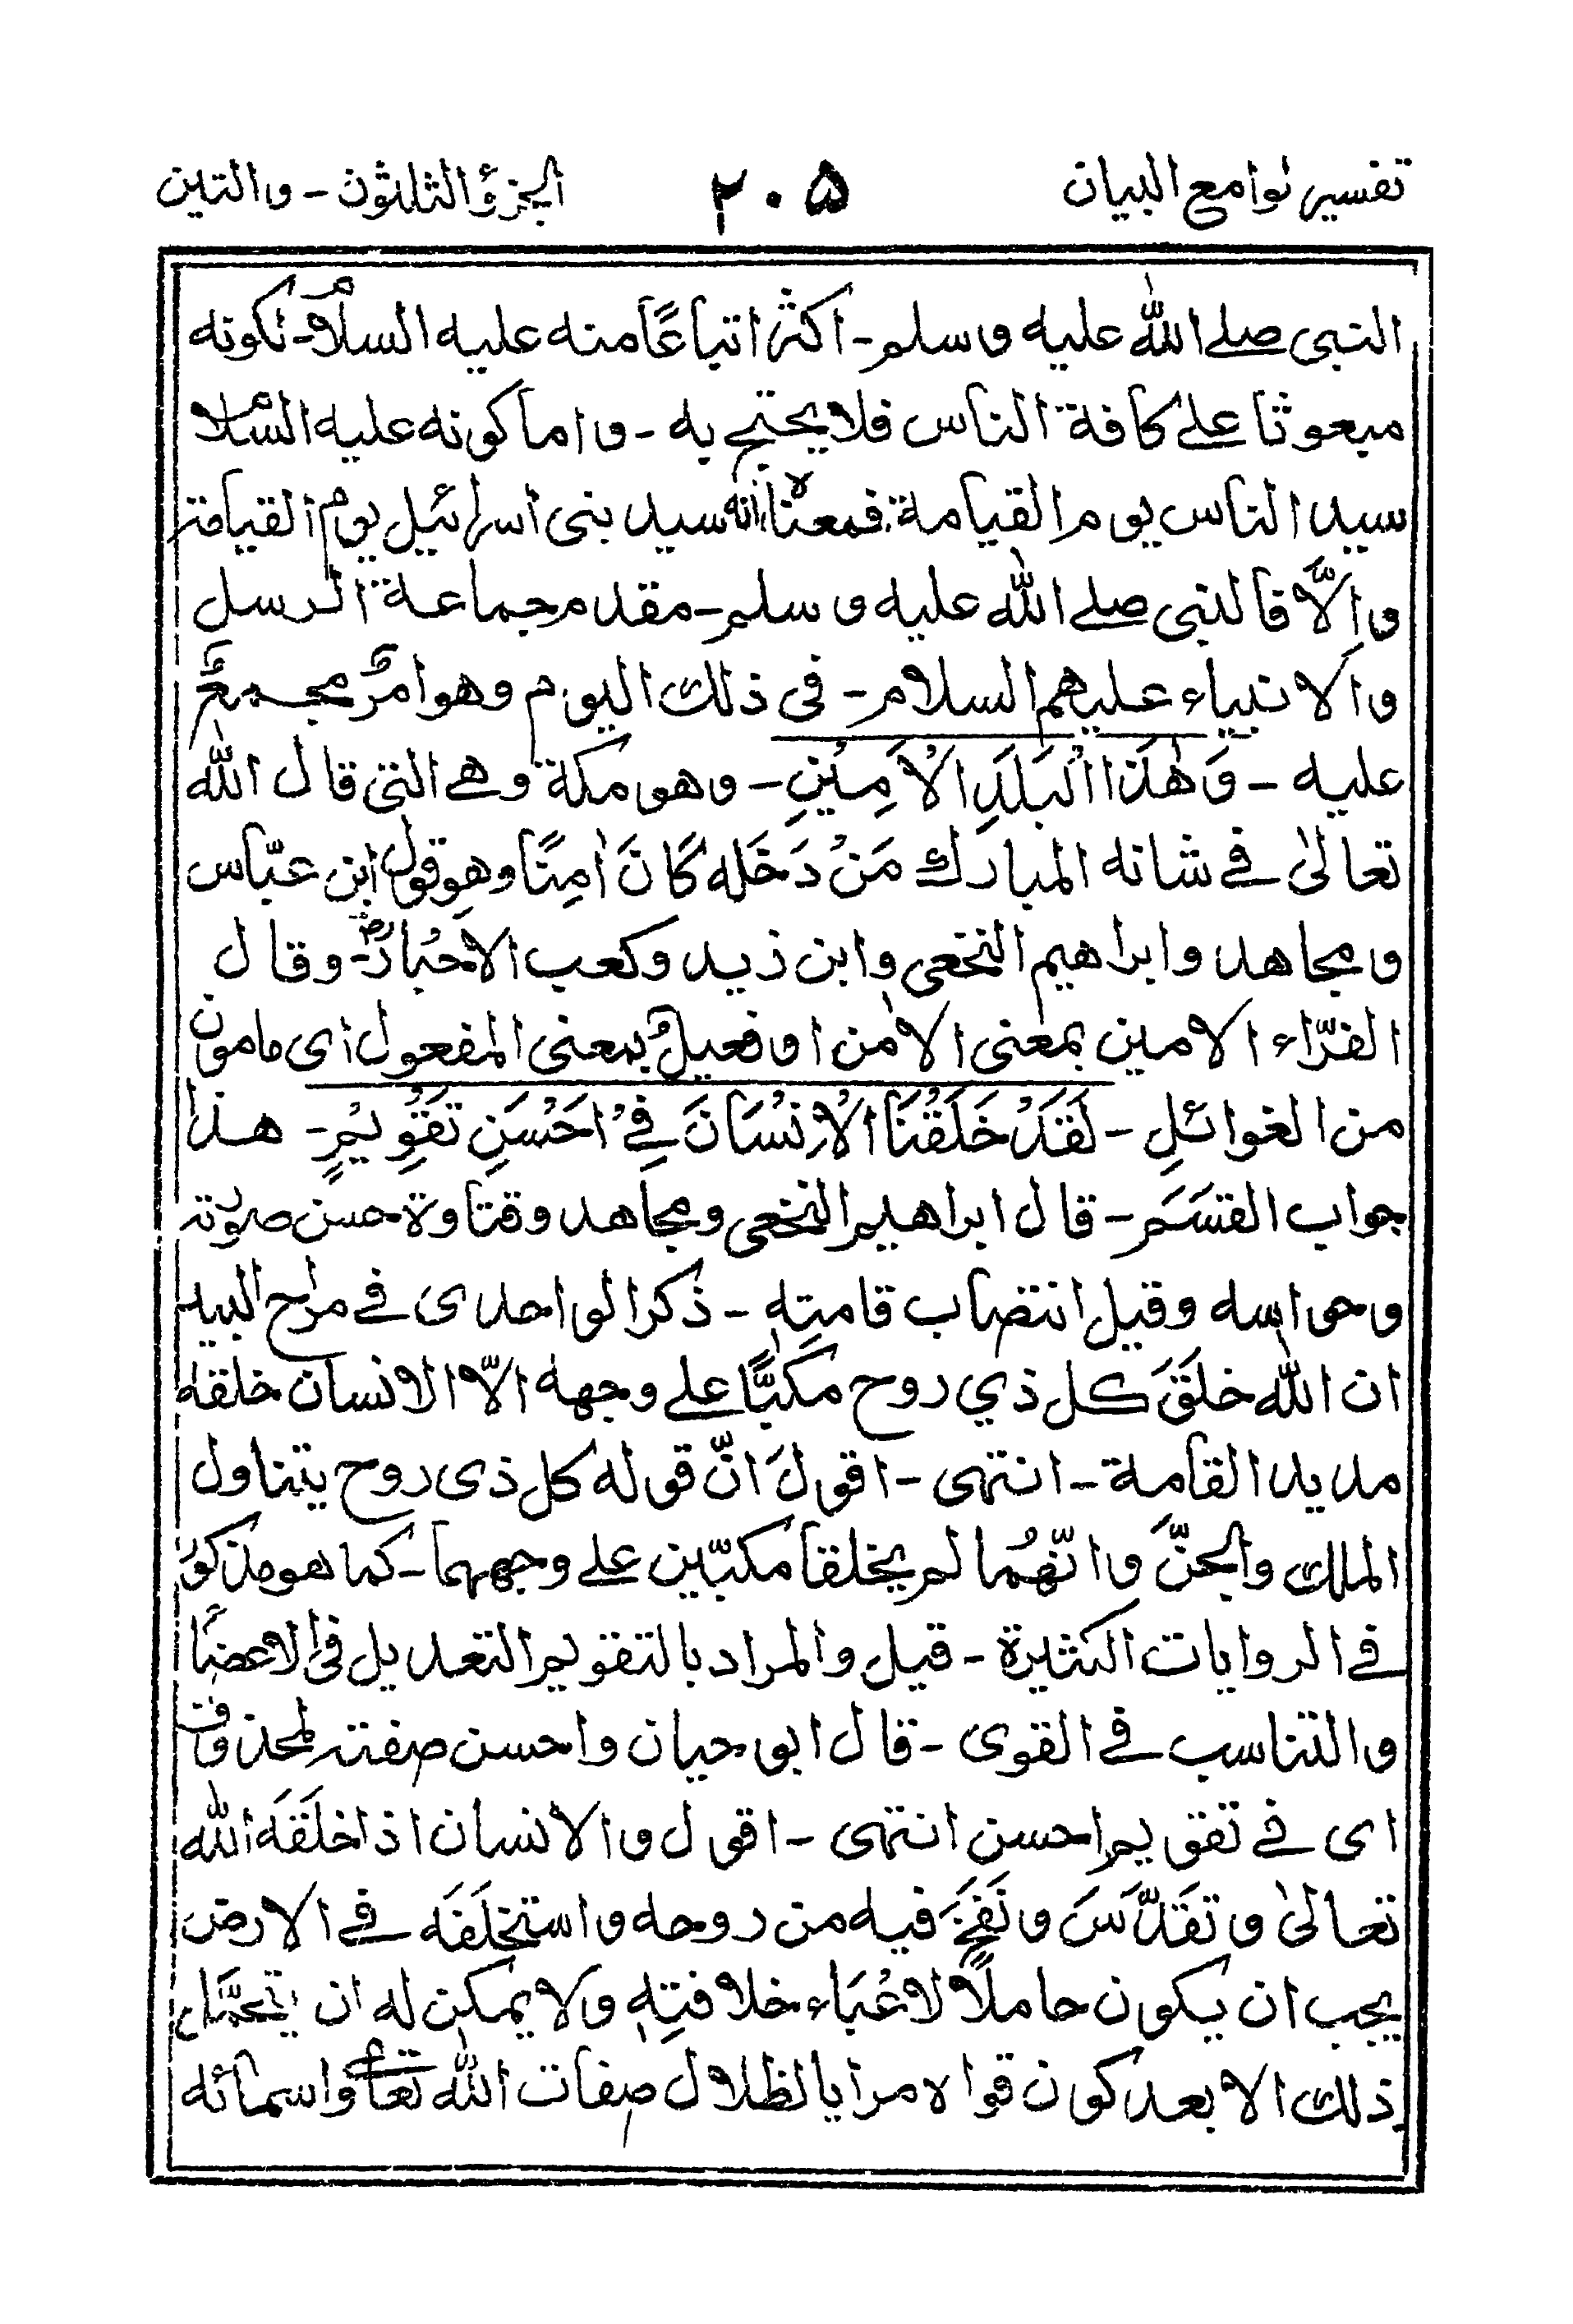 تفسير لوامع البيان ٢٠٥ الجزؤ الثلثون - والتين
النبى صلے الله عليه وسلم - اكثر اتباعًا منه عليه السلام - لكونه
مبعوثا علے كافة الناس فلا يحتج به - واما كونه عليه السلام
سيد الناس يوم القيامة فمعناه انه سيد بنى اسرائيل يوم القيامة
وإلّا فالنبى صلے الله عليه وسلم - مقدم جماعة الرسل
والانبياء عليهم السلام - فى ذلك اليوم وهو امرٌ مجمعٌ
عليه - وَهٰذَا الْبَلَدِ الْاَمِيْنِ - وهو مكة وهے التى قال الله
تعالىٰ فے شانه المبارك مَنْ دَخَلَه كَانَ اٰمِنًا وهو قول ابن عبّاس
ومجاهد وابراهيم النخعى وابن زيد وكعب الاحبار رض - وقال
الفرّاء الامين بمعنى الاٰمن او فعيلٌ بمعنى المفعول اى مامون
من الغوائلِ - لَقَدْ خَلَقْنَا الْاِنْسَانَ فِےْ اَحْسَنِ تَقْوِيْمٍ - هذا
جواب القسَم - قال ابراهيم النخعى ومجاهد وقتاوة حسن صورته
وحواسه وقيل انتصاب قامتِهٖ - ذكر الواحدى فے مراح البيد
ان الله خلَقَ كل ذي روح مكبًّا علے وجهه الّا الانسان خلقه
مديد القامة - انتهى - اقولَ انّ قوله كل ذى روح يتناول
الملك والجنَّ وانّهُما لم يخلقا مكبّين علے وجههما - كما هو مذكور
فے الروايات الكثيرة - قيل والمراد بالتقويم التعديل فى الاعضاء
والتناسب فے القوى - قال ابو حيان واحسن صفته لمحذوف
اى فے تقويم احسن انتهى - اقول والانسان اذا خلَقَه الله
تعالىٰ وتقدّسَ ونَفَخَ فيه من روحه واستخلَفَه فے الارض
يجب ان يكون حاملًا لاعْبَاء خلافتِهٖ ولا يمكن له ان يتحمَّل
ذلك الا بعد كون قواه مرايا لظلال صفات الله تعالے واسمائه